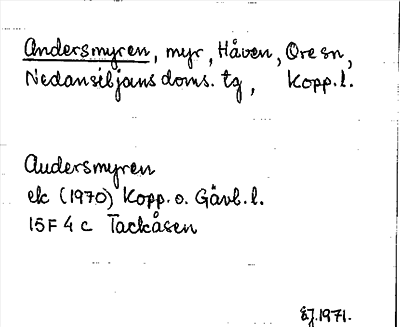 Andersmyren, myr, Håven, Ore sn,
Nedansiljans doms. tg, Kopp. l.
Andersmyren
ek (1970) Kopp. o. Gävl. l.
15F 4 c Tackåsen
EJ. 1971.